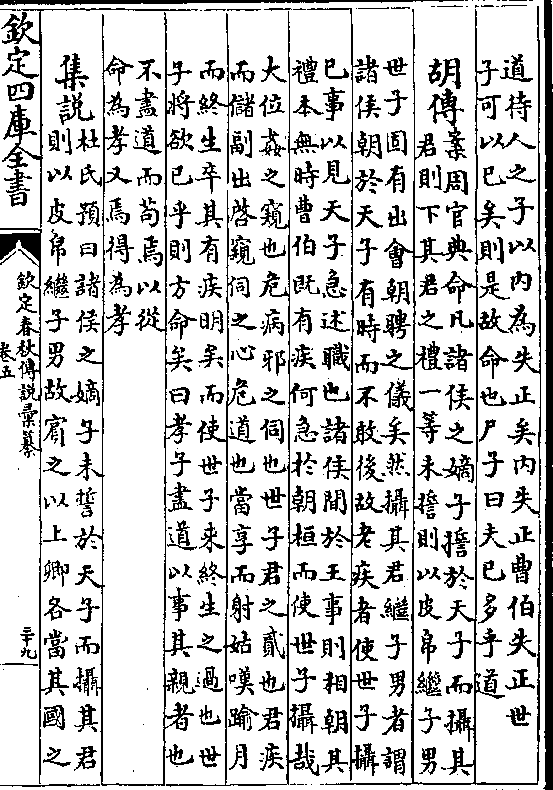 道待人之子以内為失正矣内失正曹伯失正世
子可以已矣則是故命也尸子曰夫已多乎道
胡傳案周官典命凡諸侯之嫡子誓於天子而攝其
君則下其君之禮一等未誓則以皮帛繼子男
世子固有出㑹朝聘之儀矣然攝其君繼子男者謂
諸侯朝於天子有時而不敢後故老疾者使世子攝
已事以見天子急述職也諸侯間於王事則相朝其
禮本無時曹伯既有疾何急於朝桓而使世子攝哉
大位姦之窺也危病邪之伺也世子君之貳也君疾
而儲副出啓窺伺之心危道也當享而射姑嘆踰月
而終生卒其有疾明矣而使世子來終生之過也世
子將欲已乎則方命矣曰孝子盡道以事其親者也
不盡道而苟焉以從
命為孝又焉得為孝
集説杜氏預曰諸侯之嫡子未誓於天子而攝其君
則以皮帛繼子男故賔之以上卿各當其國之
欽定四庫全書
欽定春秋傳説彙纂
卷五
二十九